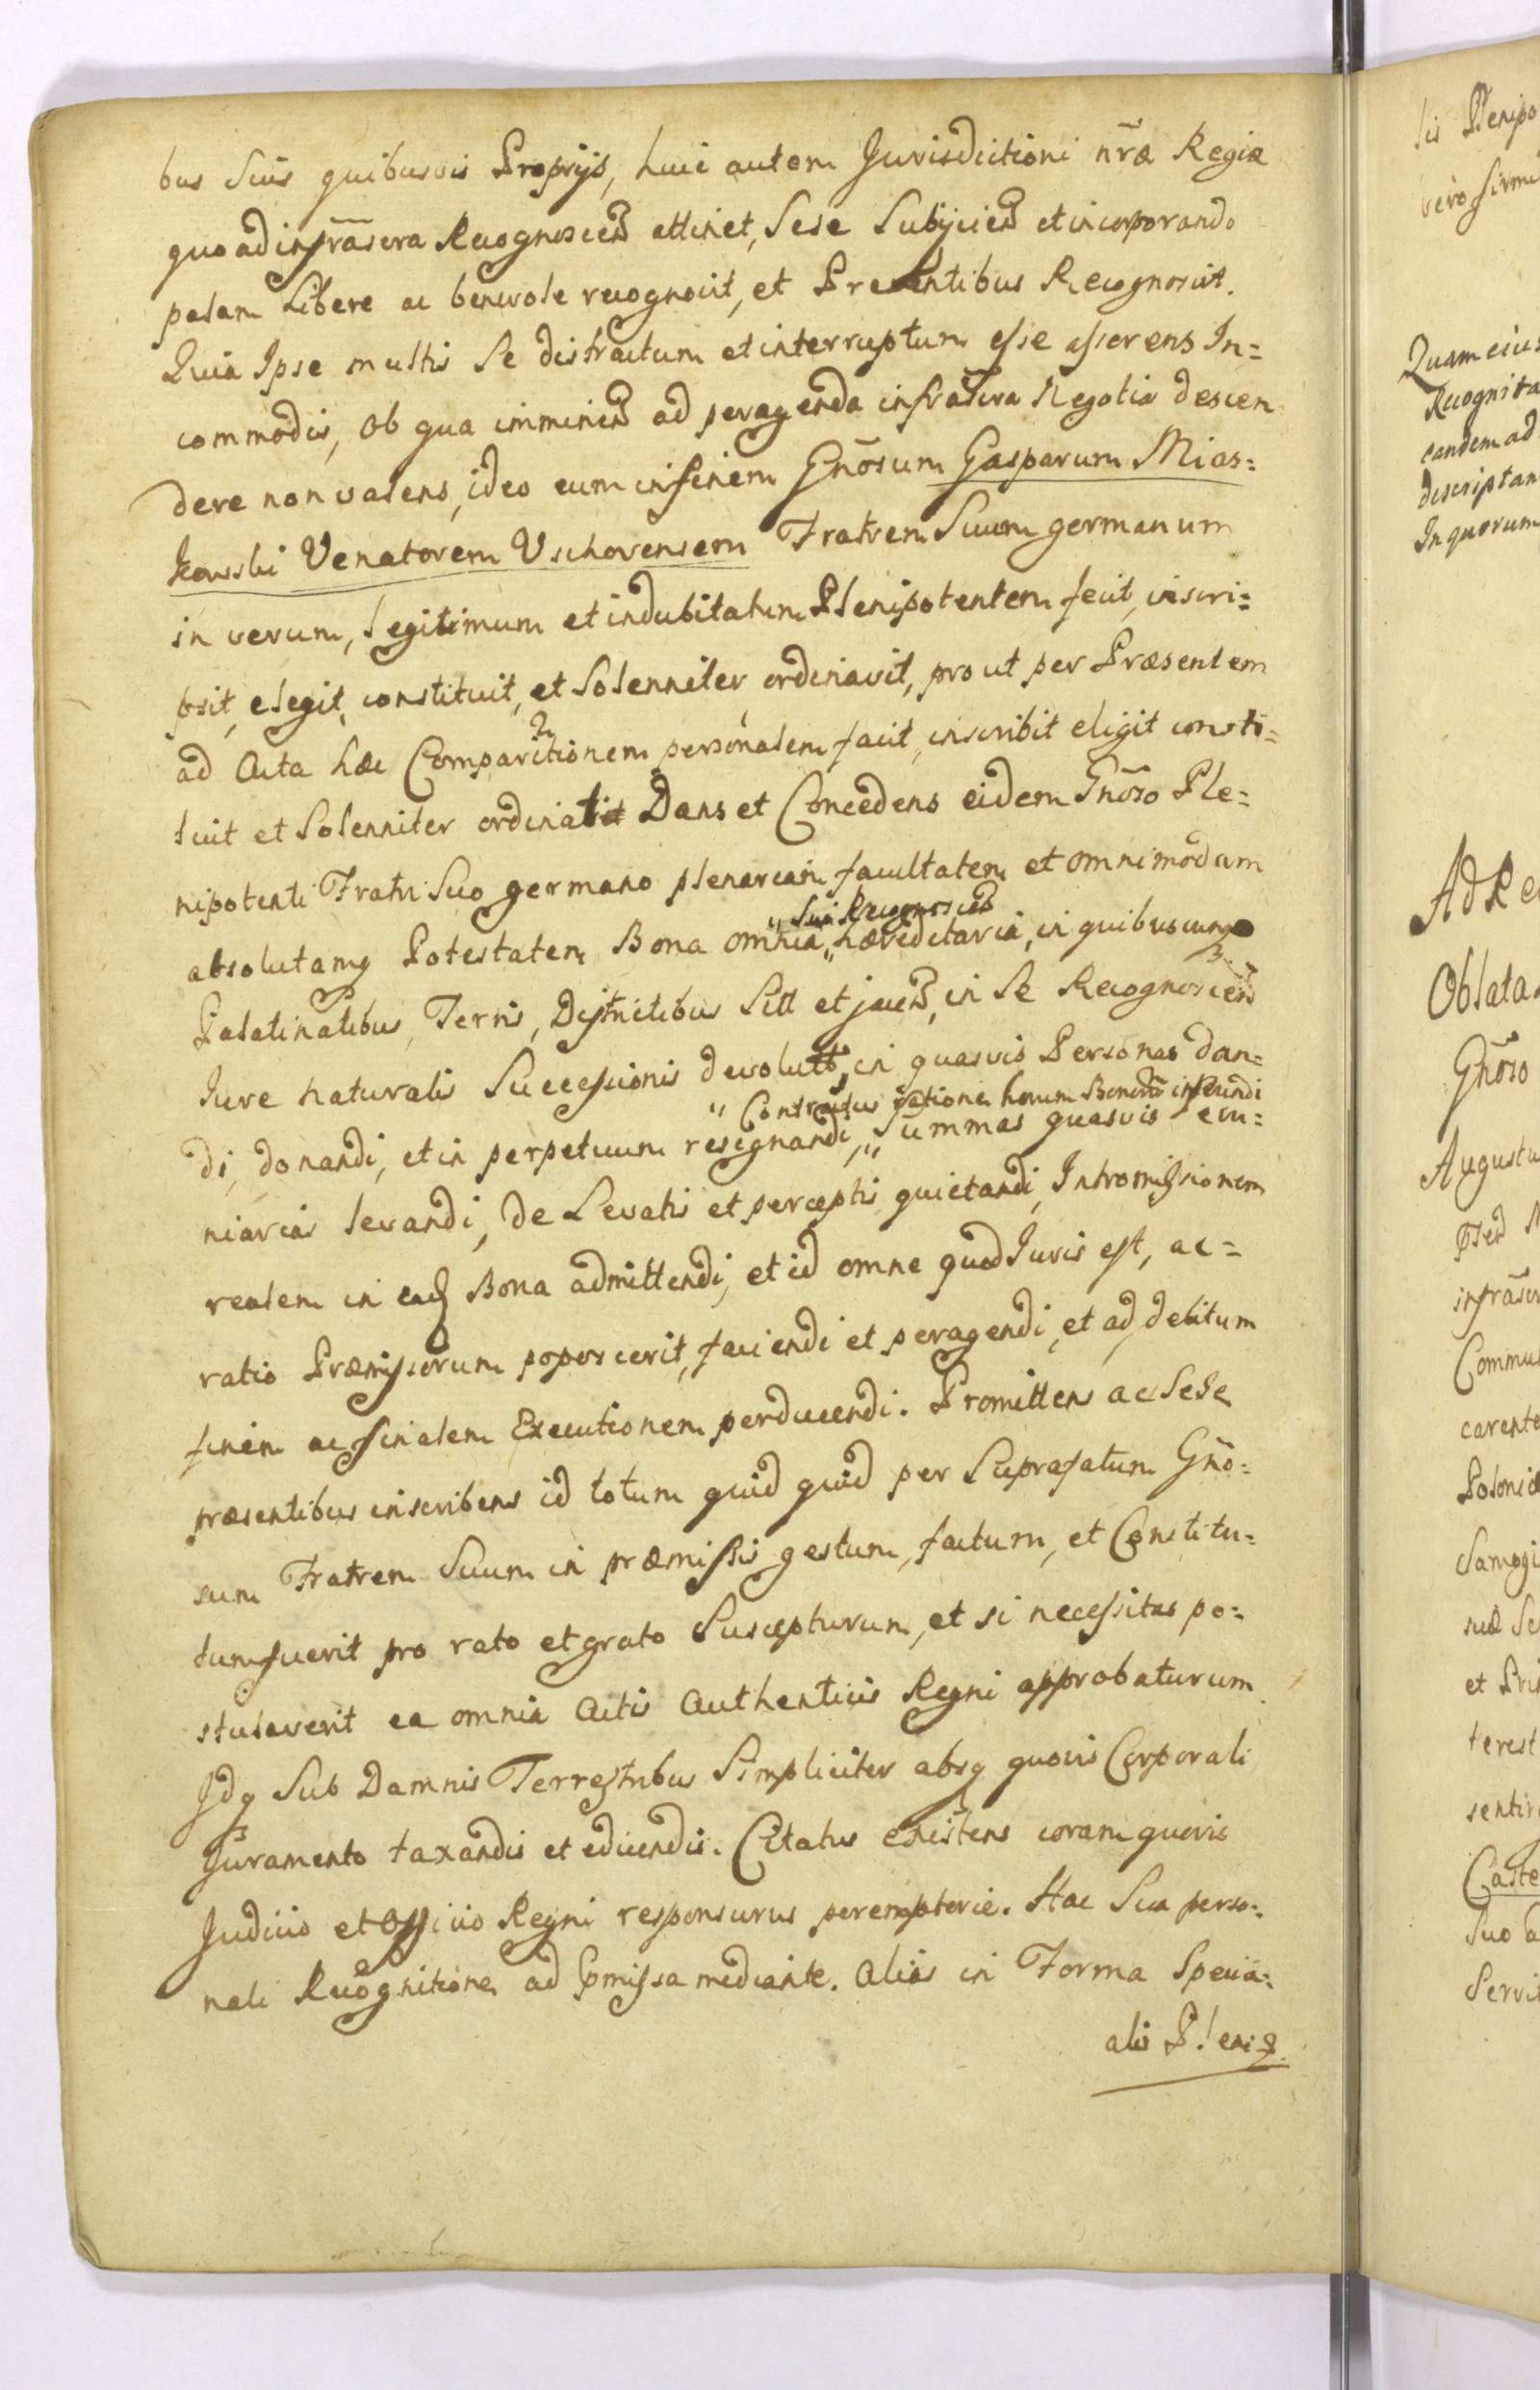 bus Suis quibusvis Propriis, huic autem Jurisdictioni nr̃æ Regiæ
quo ad infrãscra Recognoscen̄ attinet, Sese Subijcien̄ et incorporando
palam Libere ac benevole recognovit, et Presentibus Recognoscit.
Quia Ipse multis Se distractum et interruptum esse asserens In=
commodis, ob quæ imminen̄ ad peragenda infrãscra Negotia descen
dere non valens, ideo eum in finem Gnõsum Gasparum Mias=
kowski Venatorem Vschovensem Fratrem Suum germanum
in verum, legitimum et indubitatum Plenipotentem fecit, inscri=
psit, elegit, constituit, et Solenniter ordinavit, prout per Præsentem
ad Acta hæc Comparitionem personalem facit, inscribit eligit consti=
tuit et Solenniter ordinat Dans et Concedens eidem Gnõso Ple=
nipotenti Fratri Suo germano plenariam facultatem et omnimodam
" Sui Recognoscen̄
absolutamq Potestatem Bona omnia " hæreditaria, in quibuscunq
Palatinatibus, Terris, Districtibus Sitt et jacen̄, in Se Recognoscen̄
Jure naturalis Successionis devolutt, in quasvis Personas dan=
" Contractus ratione horum Bonorũ inseundi
di, donandi, et in perpetuum resignandi, " Summas quasvis ecu=
niarias levandi, de Levatis et perceptis quietandi, Intromissionem
realem in ead Bona admittendi, et id omne quod Juris est, ac=
ratio Præmissorum poposcerit, faciendi et peragendi, et ad debitum
finem ac finalem Executionem perducendi. Promittens ac Sese
præsentibus inscribens id totum quid quid per Suprafatum Gnõ=
sum Fratrem Suum in præmissis gestum, factum, et Constitu=
tum fuerit pro rato et grato Suscepturum, et si necessitas po=
stulaverit ea omnia Actis Authenticis Regni approbaturum
Idq Sub Damnis Terrestribus Simpliciter absq quovis Corporali
Juramento taxandis et edicendis. Citatus existens coram quovis
Judicio et Officio Regni responsurus peremptorie. Hac Sua perso=
nali Recognitione ad p̃missa mediante. Alias in Forma Specia=
alis Plenip.
lis Plenipo
vero firmi
Quam eius
Recognita
eandem ad
descriptam
In quorum
Ad Re
Oblata
Gnõso
Augustu
infrãscr
Commu
carente
Poloniæ
Samogi
suæ Se
et Pri
terest
sentir
Caste
Suo
Servi